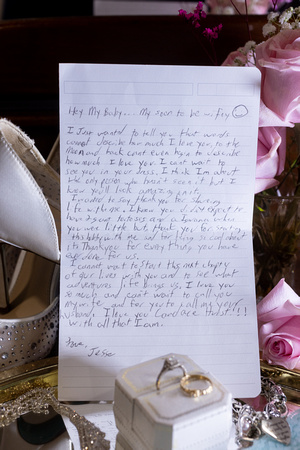 Hey My Baby... My soon to be wifey
I Just wanted to tell you that words
cannot describe how much I love you, to the
Moon and back cant even begin to calculate
how much I love you. I cant wait to
see you in your dress. I think Im about
the only person who hasnt seen it but I
know you'll look amazing in it.
I wanted to say thank you for sharing
life with me. I know you didnt expect to
have
you were little, but thank you for
this with me and for
it. Thank you for everything you have
done for us.
I cannot wait to start this next chapter
of our lives with you and to see what
adventures life brings us. I love you
so much and cant wait to call you
my wife and for you to call me your
husband. I love you
with all that I am.
Love,
Jesse